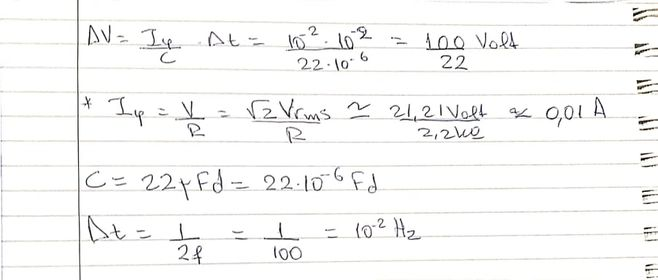 ΔV = Iφ/C · Δt = 10⁻² · 10⁻² / 22·10⁻⁶ = 100/22 Volt
* Iφ = V/R = √2 Vrms/R ≃ 21,21 Volt/2,2kΩ ∝ 0,01 A
C = 22μFd = 22·10⁻⁶ Fd
Δt = 1/2f = 1/100 = 10⁻² Hz